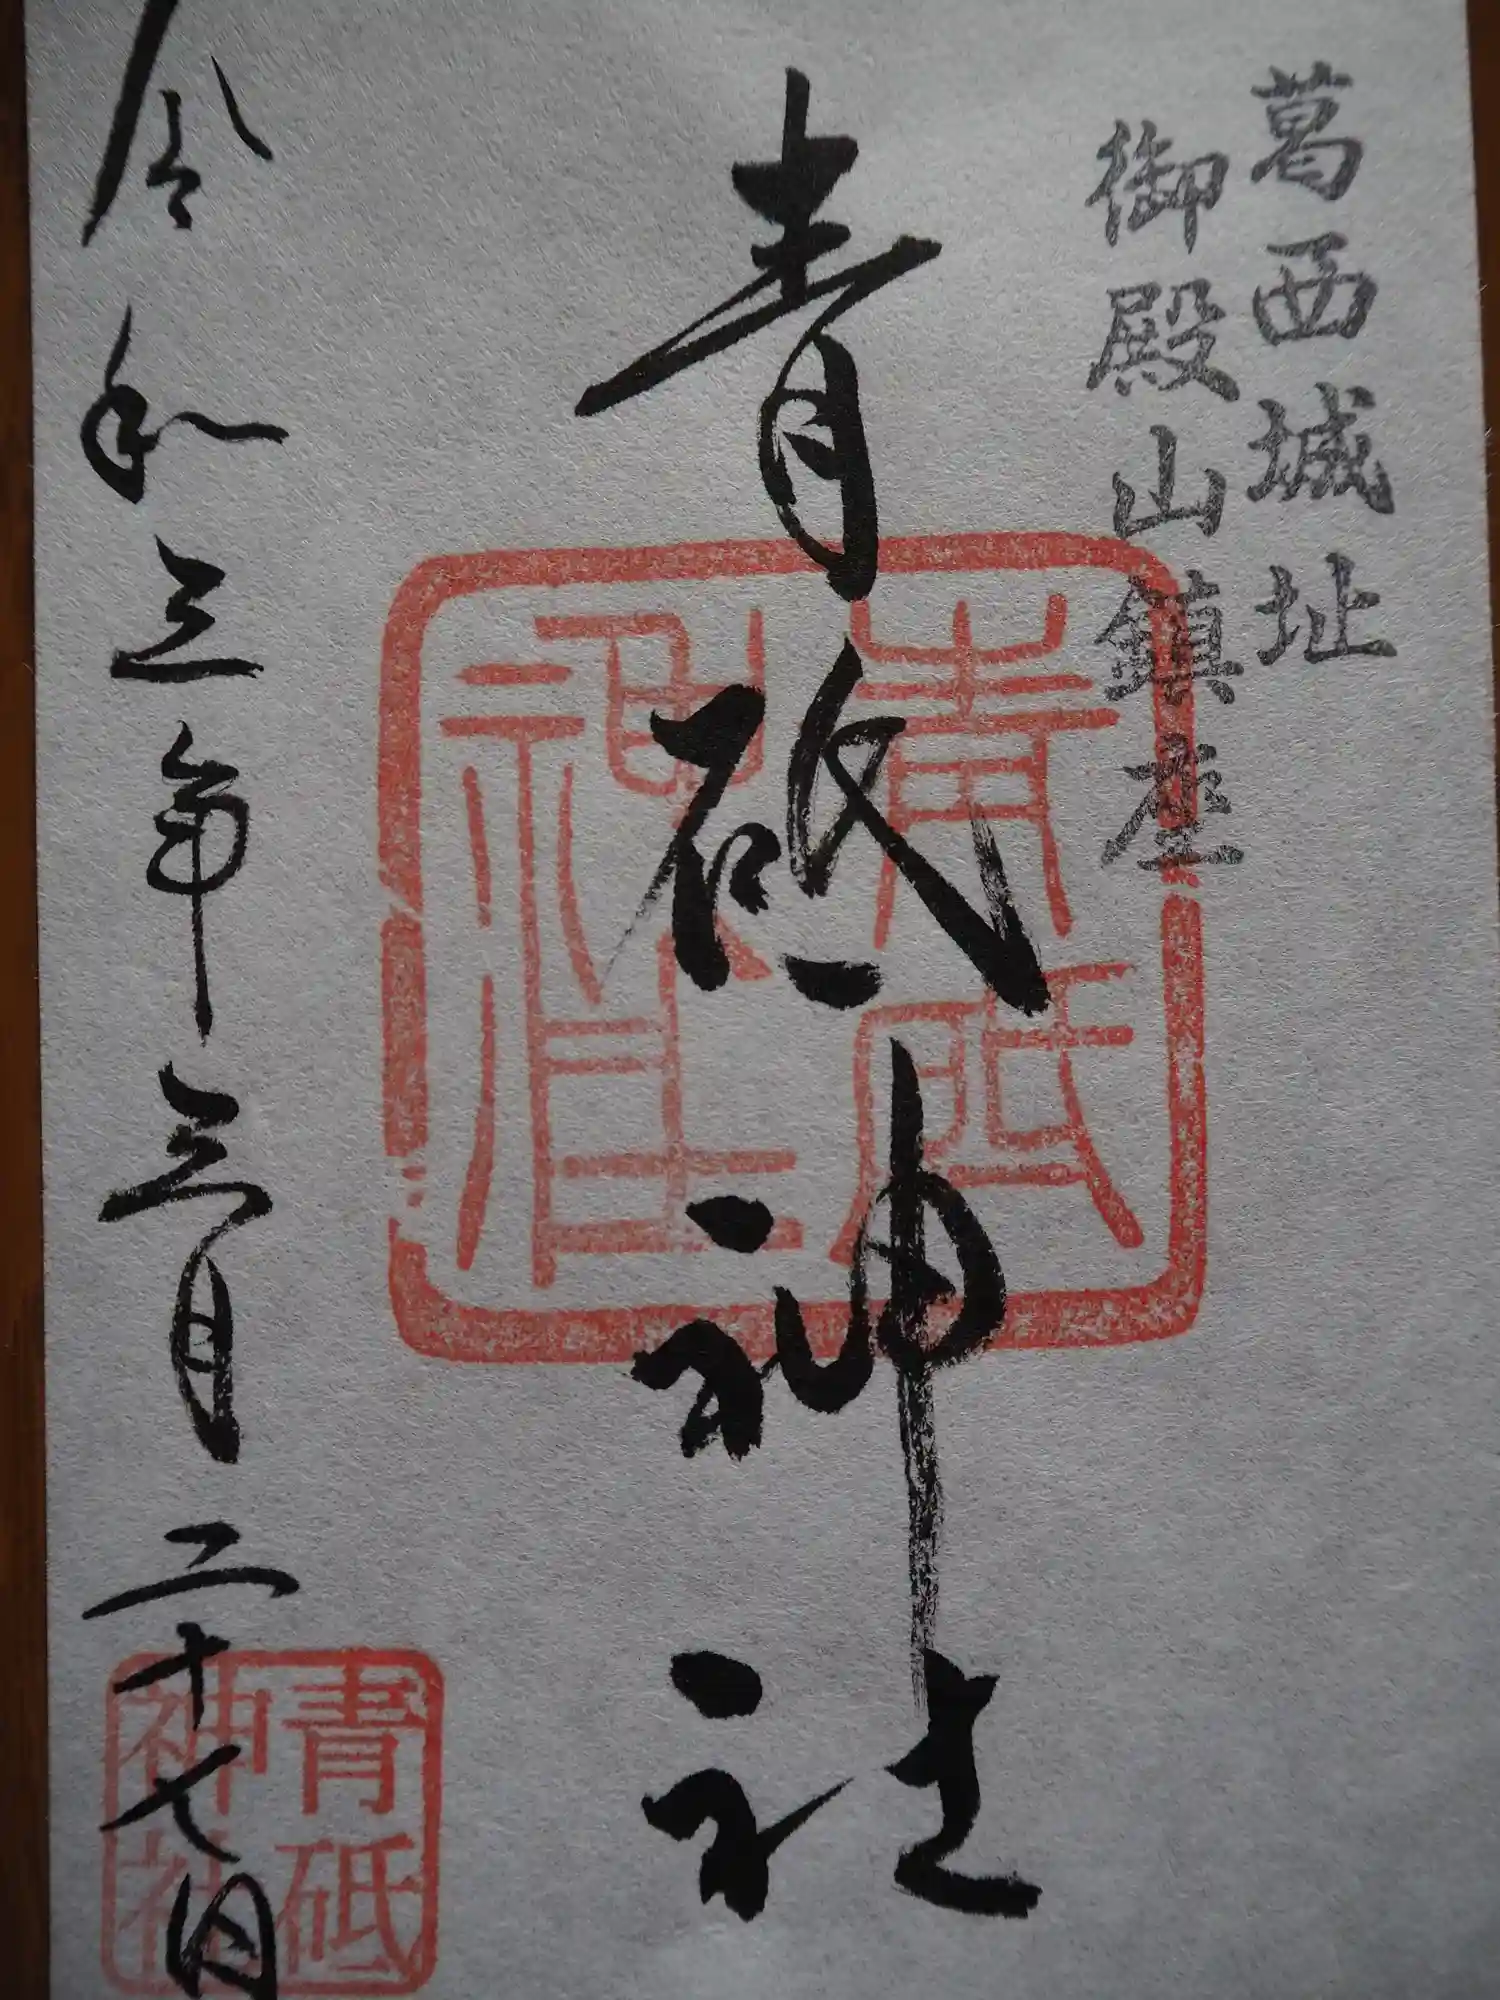 葛西城址
御殿山鎮座
青砥神社
青砥神社
令和三年三月二十七日
青砥神社